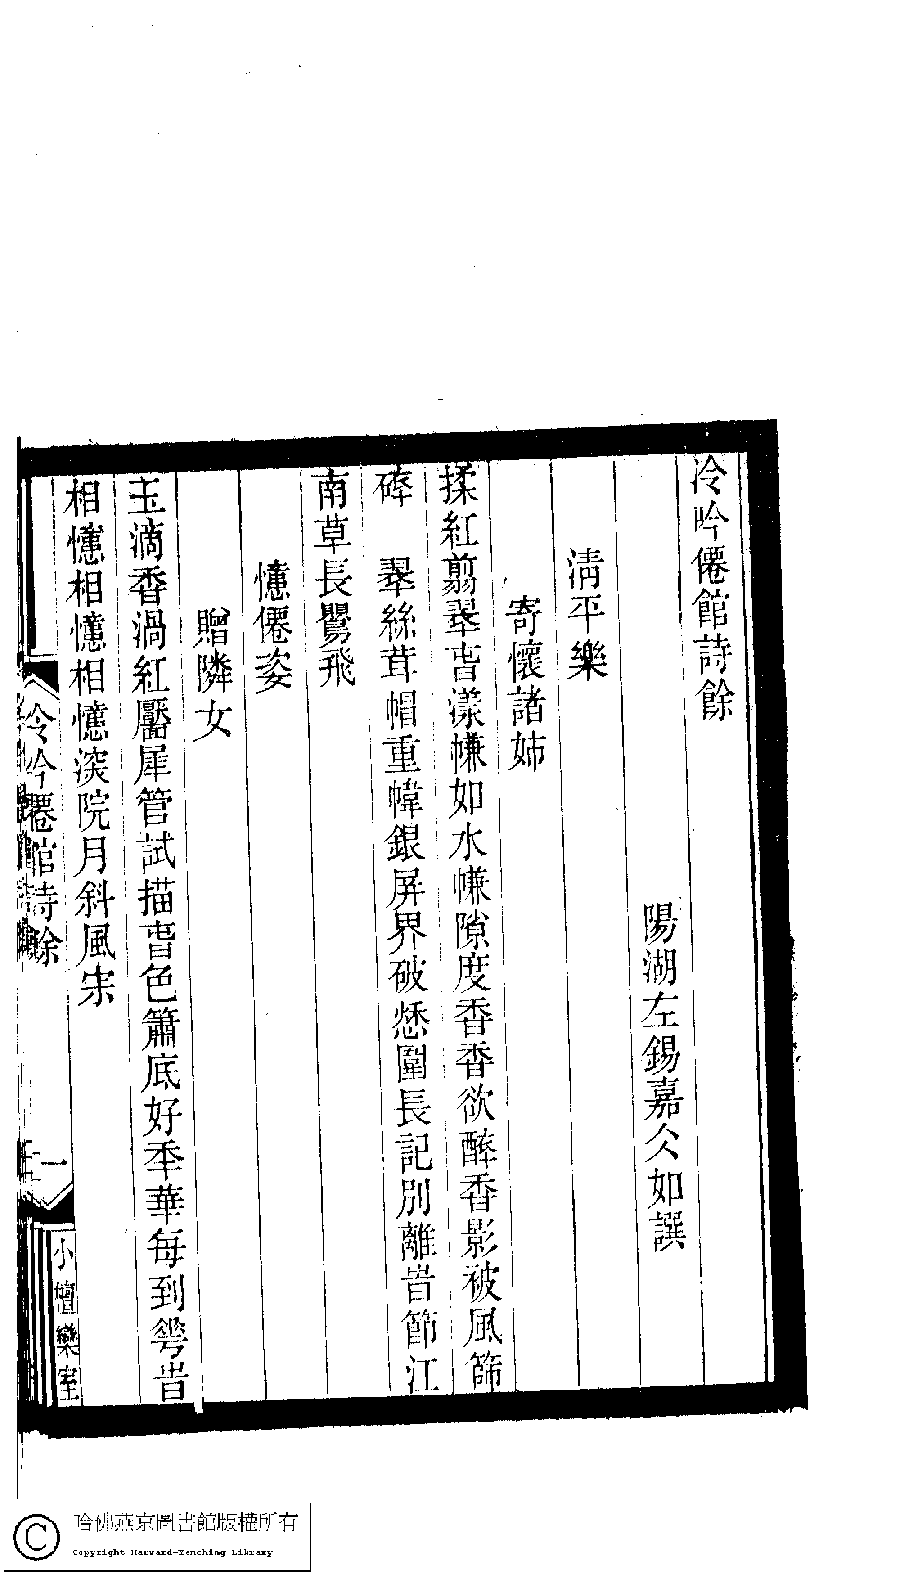 冷吟僊館詩餘
陽湖左錫嘉仌如譔
淸平樂
寄懷諸姊
揉紅翦翠旾漾㡘如水㡘隙度香香欲醉香影被風篩
碎　翠絲茸帽重幃銀屏界破愁圍長記別離旹節江
南草長鸎飛
憶僊姿
贈隣女
玉滴香渦紅靨犀管試描旾色簫底好季華每到𠌶旹
相憶相憶相憶深院月斜風宋
冷吟僊館詩餘
一
小檀欒室
哈佛燕京圖書館版權所有
Copyright Harvard-Yenching Library